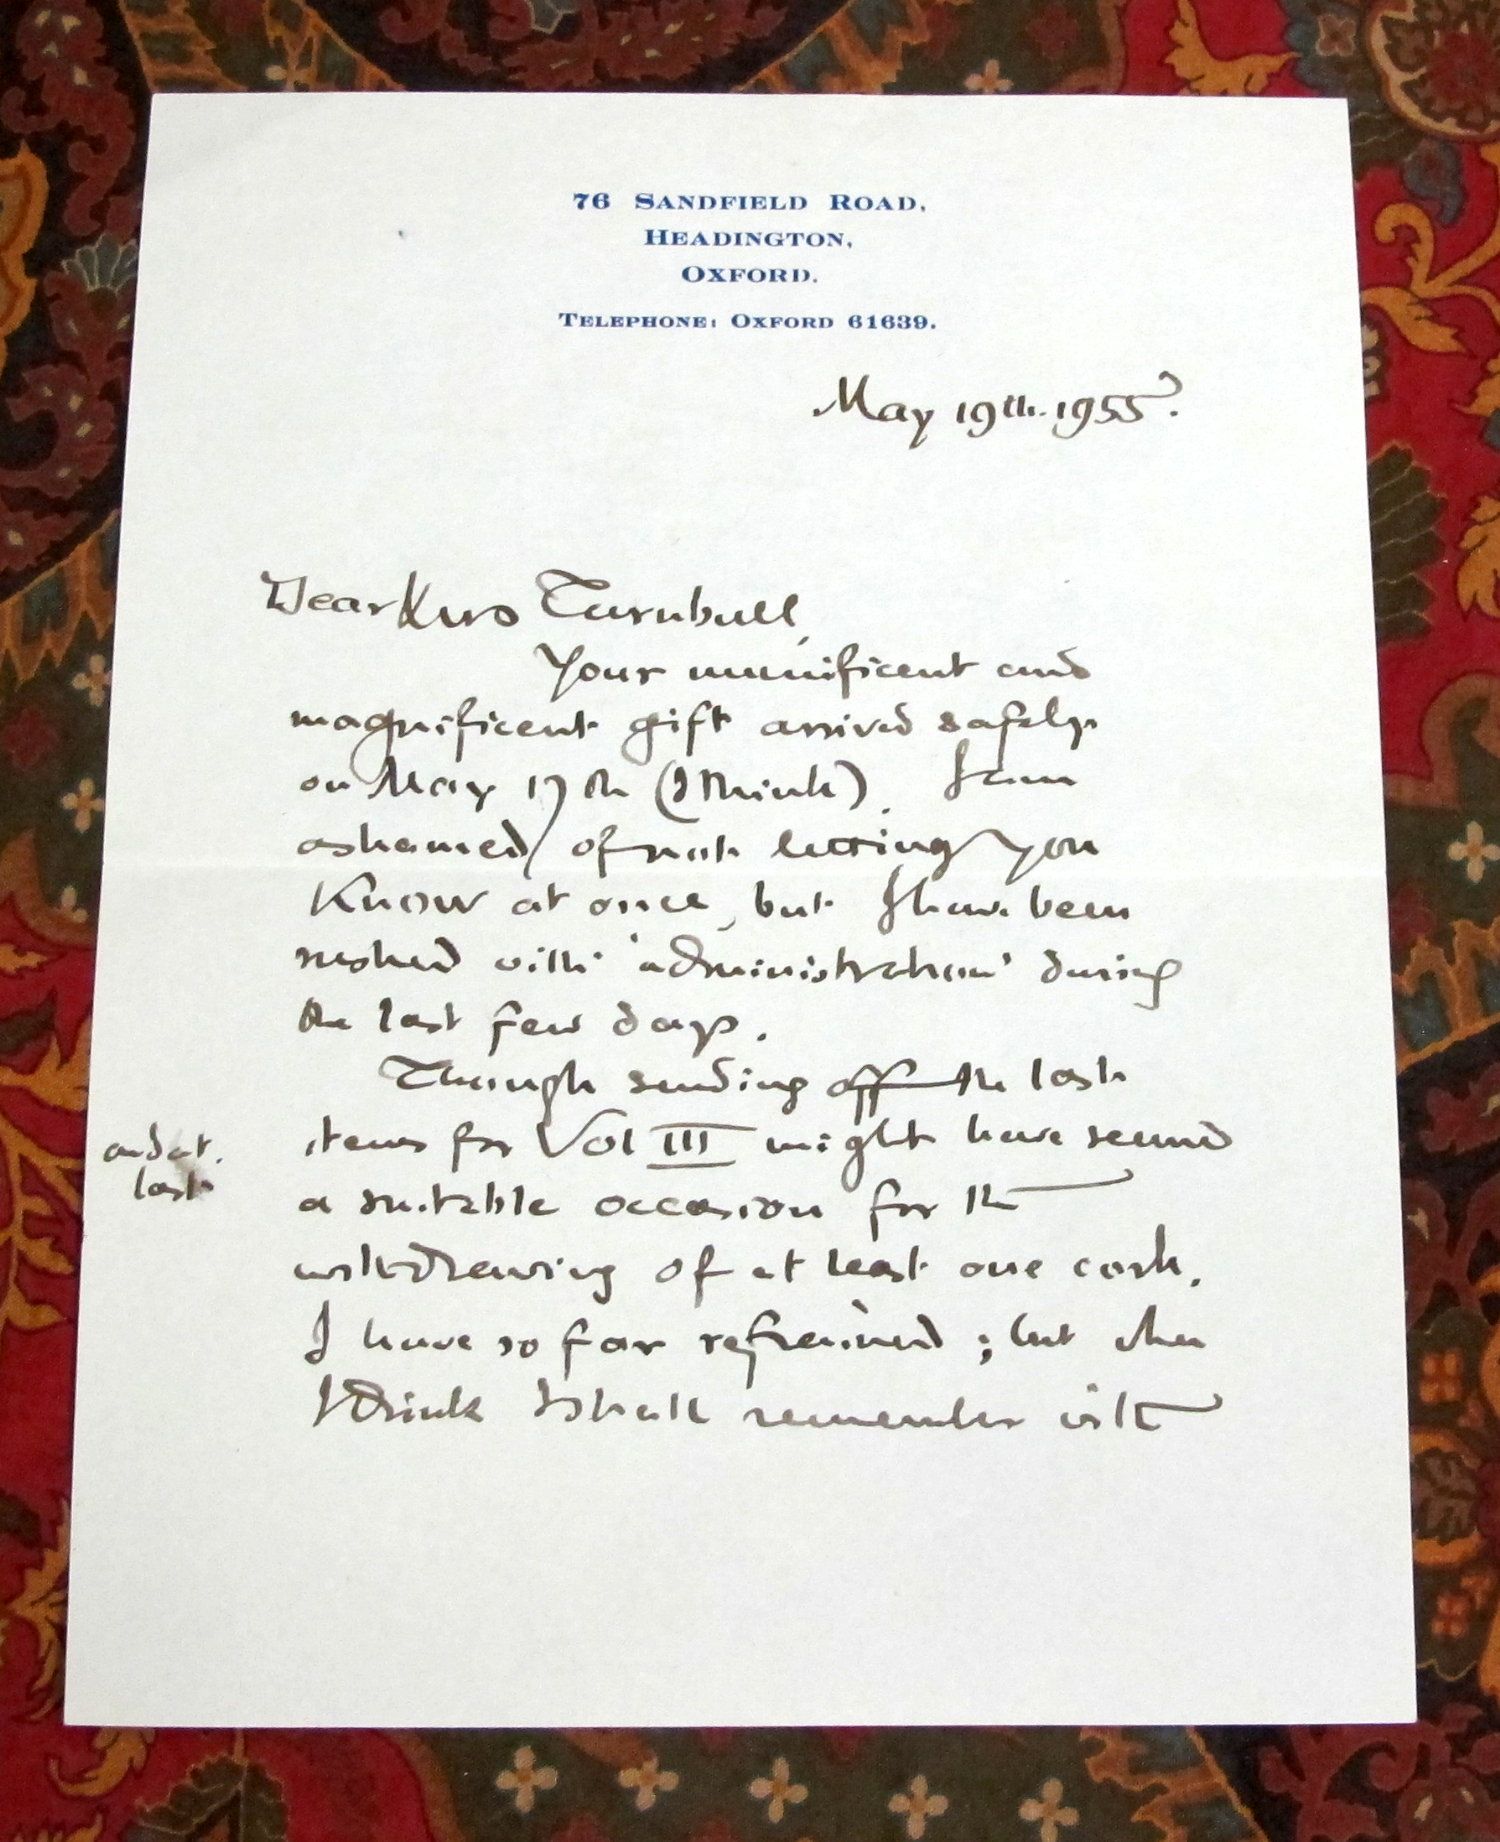 76 SANDFIELD ROAD,
HEADINGTON,
OXFORD.
TELEPHONE: OXFORD 61639.
May 19th. 1955.
Dear Turnbull,
Your munificent and
magnificent gift arrived safely
on May 17th (I think). I am
ashamed of not letting you
know at once, but I have been
rushed with 'administration' during
the last few days.
Though sending off the last
items for Vol III might have seemed
and at
last
a suitable occasion for the
withdrawing of at least one cork,
I have so far refrained; but when
I drink I shall remember with